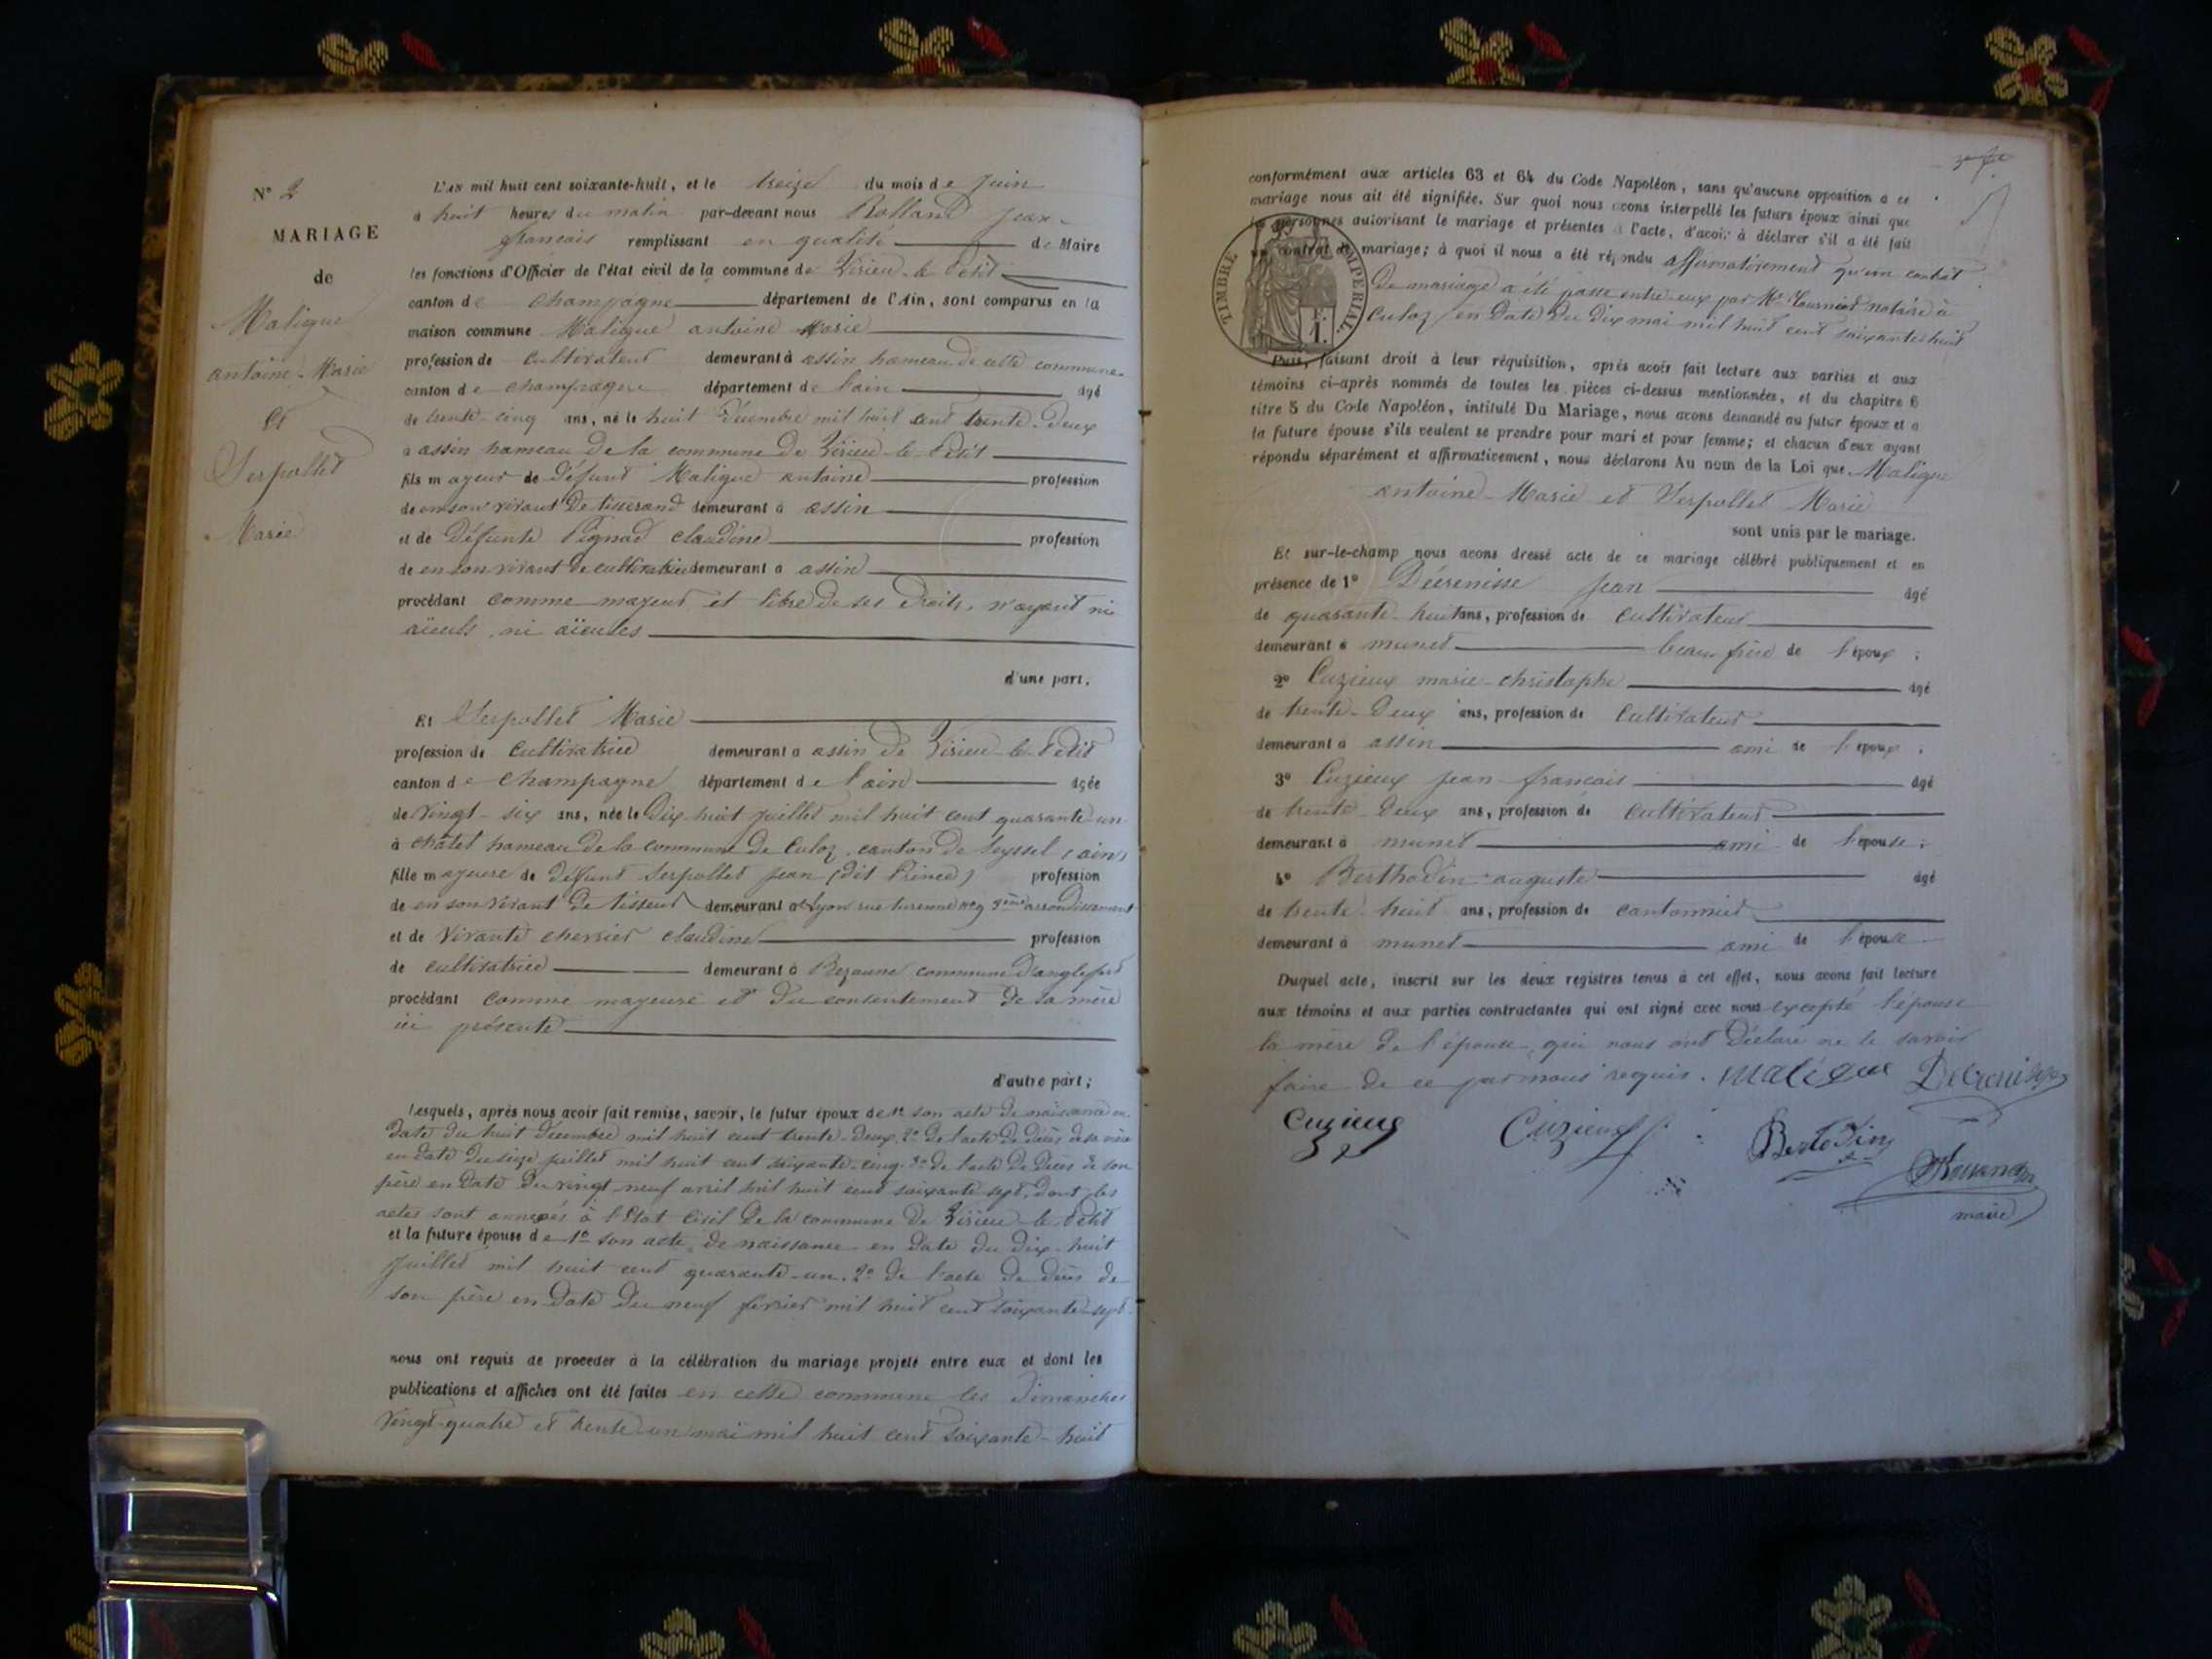 N° 2
MARIAGE
de
Maligue
antoine-Marie
Et
Serpollet
Marie
L'an mil huit cent soixante-huit, et le treize du mois de juin
à huit heures du matin par-devant nous Rolland jean-
francois remplissant en qualité de Maire
les fonctions d'Officier de l'état civil de la commune de Virieu-le-Petit
canton de Champagne département de l'Ain, sont comparus en la
maison commune Maligue antoine Marie
profession de Cultivateur demeurant à assin hameau de cette commune
canton de champagne département de l'ain âgé
de trente-cinq ans, né le huit décembre mil huit cent trente-deux
à assin hameau de la commune de Virieu-le-Petit
fils majeur de défunt Maligue antoine profession
de en son vivant de tisserand demeurant à assin
et de défunte Pignad claudine profession
de en son vivant de cultivatrice demeurant à assin
procédant comme majeur et libre de ses droits, n'ayant ni
aïeuls, ni aïeules
d'une part.
Et Serpollet Marie
profession de Cultivatrice demeurant à assin de Virieu-le-Petit
canton de Champagne département de l'ain âgée
de vingt-six ans, née le dix-huit juillet mil huit cent quarante-un
à châtel hameau de la commune de Culoz, canton de Seyssel (ain)
fille majeure de défunt Serpollet jean (dit Prince) profession
de en son vivant de tisseur demeurant à Lyon rue turenne n° 9 3ème arrondissement
et de vivante chervier claudine profession
de cultivatrice demeurant à Bezanne commune d'anglefort
procédant comme majeure et du consentement de sa mère
ici présente
d'autre part;
Lesquels, après nous avoir fait remise, savoir, le futur époux de 1° son acte de naissance en
date du huit décembre mil huit cent trente-deux, 2° de l'acte de décès de sa mère
en date du seize juillet mil huit cent soixante-cinq, 3° de l'acte de décès de son
père en date du vingt-neuf avril mil huit cent soixante sept, dont les
actes sont annexés à l'Etat Civil de la commune de Virieu-le-Petit
et la future épouse de 1° son acte de naissance en date du dix-huit
juillet mil huit cent quarante-un, 2° de l'acte de décès de
son père en date du neuf février mil huit cent soixante-sept.
nous ont requis de procéder à la célébration du mariage projeté entre eux et dont les
publications et affiches ont été faites en cette commune les dimanches
vingt-quatre et trente-un mai mil huit cent soixante-huit
conformément aux articles 63 et 64 du Code Napoléon, sans qu'aucune opposition à ce
mariage nous ait été signifiée. Sur quoi nous avons interpellé les futurs époux ainsi que
les personnes autorisant le mariage et présentes à l'acte, d'avoir à déclarer s'il a été fait
un contrat de mariage; à quoi il nous a été répondu affirmativement qu'un contrat
de mariage a été passé entre eux par Me Tournier notaire à
Culoz en date du dix mai mil huit cent soixante-huit
TIMBRE IMPERIAL
Puis, faisant droit à leur réquisition, après avoir fait lecture aux parties et aux
témoins ci-après nommés de toutes les pièces ci-dessus mentionnées, et du chapitre 6
titre 5 du Code Napoléon, intitulé Du Mariage, nous avons demandé au futur époux et à
la future épouse s'ils veulent se prendre pour mari et pour femme; et chacun d'eux ayant
répondu séparément et affirmativement, nous déclarons Au nom de la Loi que Maligue
antoine-Marie et Serpollet Marie
sont unis par le mariage.
Et sur-le-champ nous avons dressé acte de ce mariage célébré publiquement et en
présence de 1° Décrenisse jean âgé
de quarante-huit ans, profession de Cultivateur
demeurant à munet beau frère de l'époux;
2° Cuzieux marie-christophe âgé
de trente-deux ans, profession de Cultivateur
demeurant à assin ami de l'époux.
3° Cuzieux jean-francois âgé
de trente-deux ans, profession de Cultivateur
demeurant à munet ami de l'épouse;
4° Berthodin auguste âgé
de trente-huit ans, profession de cantonnier
demeurant à munet ami de l'épouse
Duquel acte, inscrit sur les deux registres tenus à cet effet, nous avons fait lecture
aux témoins et aux parties contractantes qui ont signé avec nous excepté l'épouse
la mère de l'épouse, qui nous ont déclaré ne le savoir
faire de ce par nous requis. Maligue Decrenisse
Cuzieux Cuzieux
maire